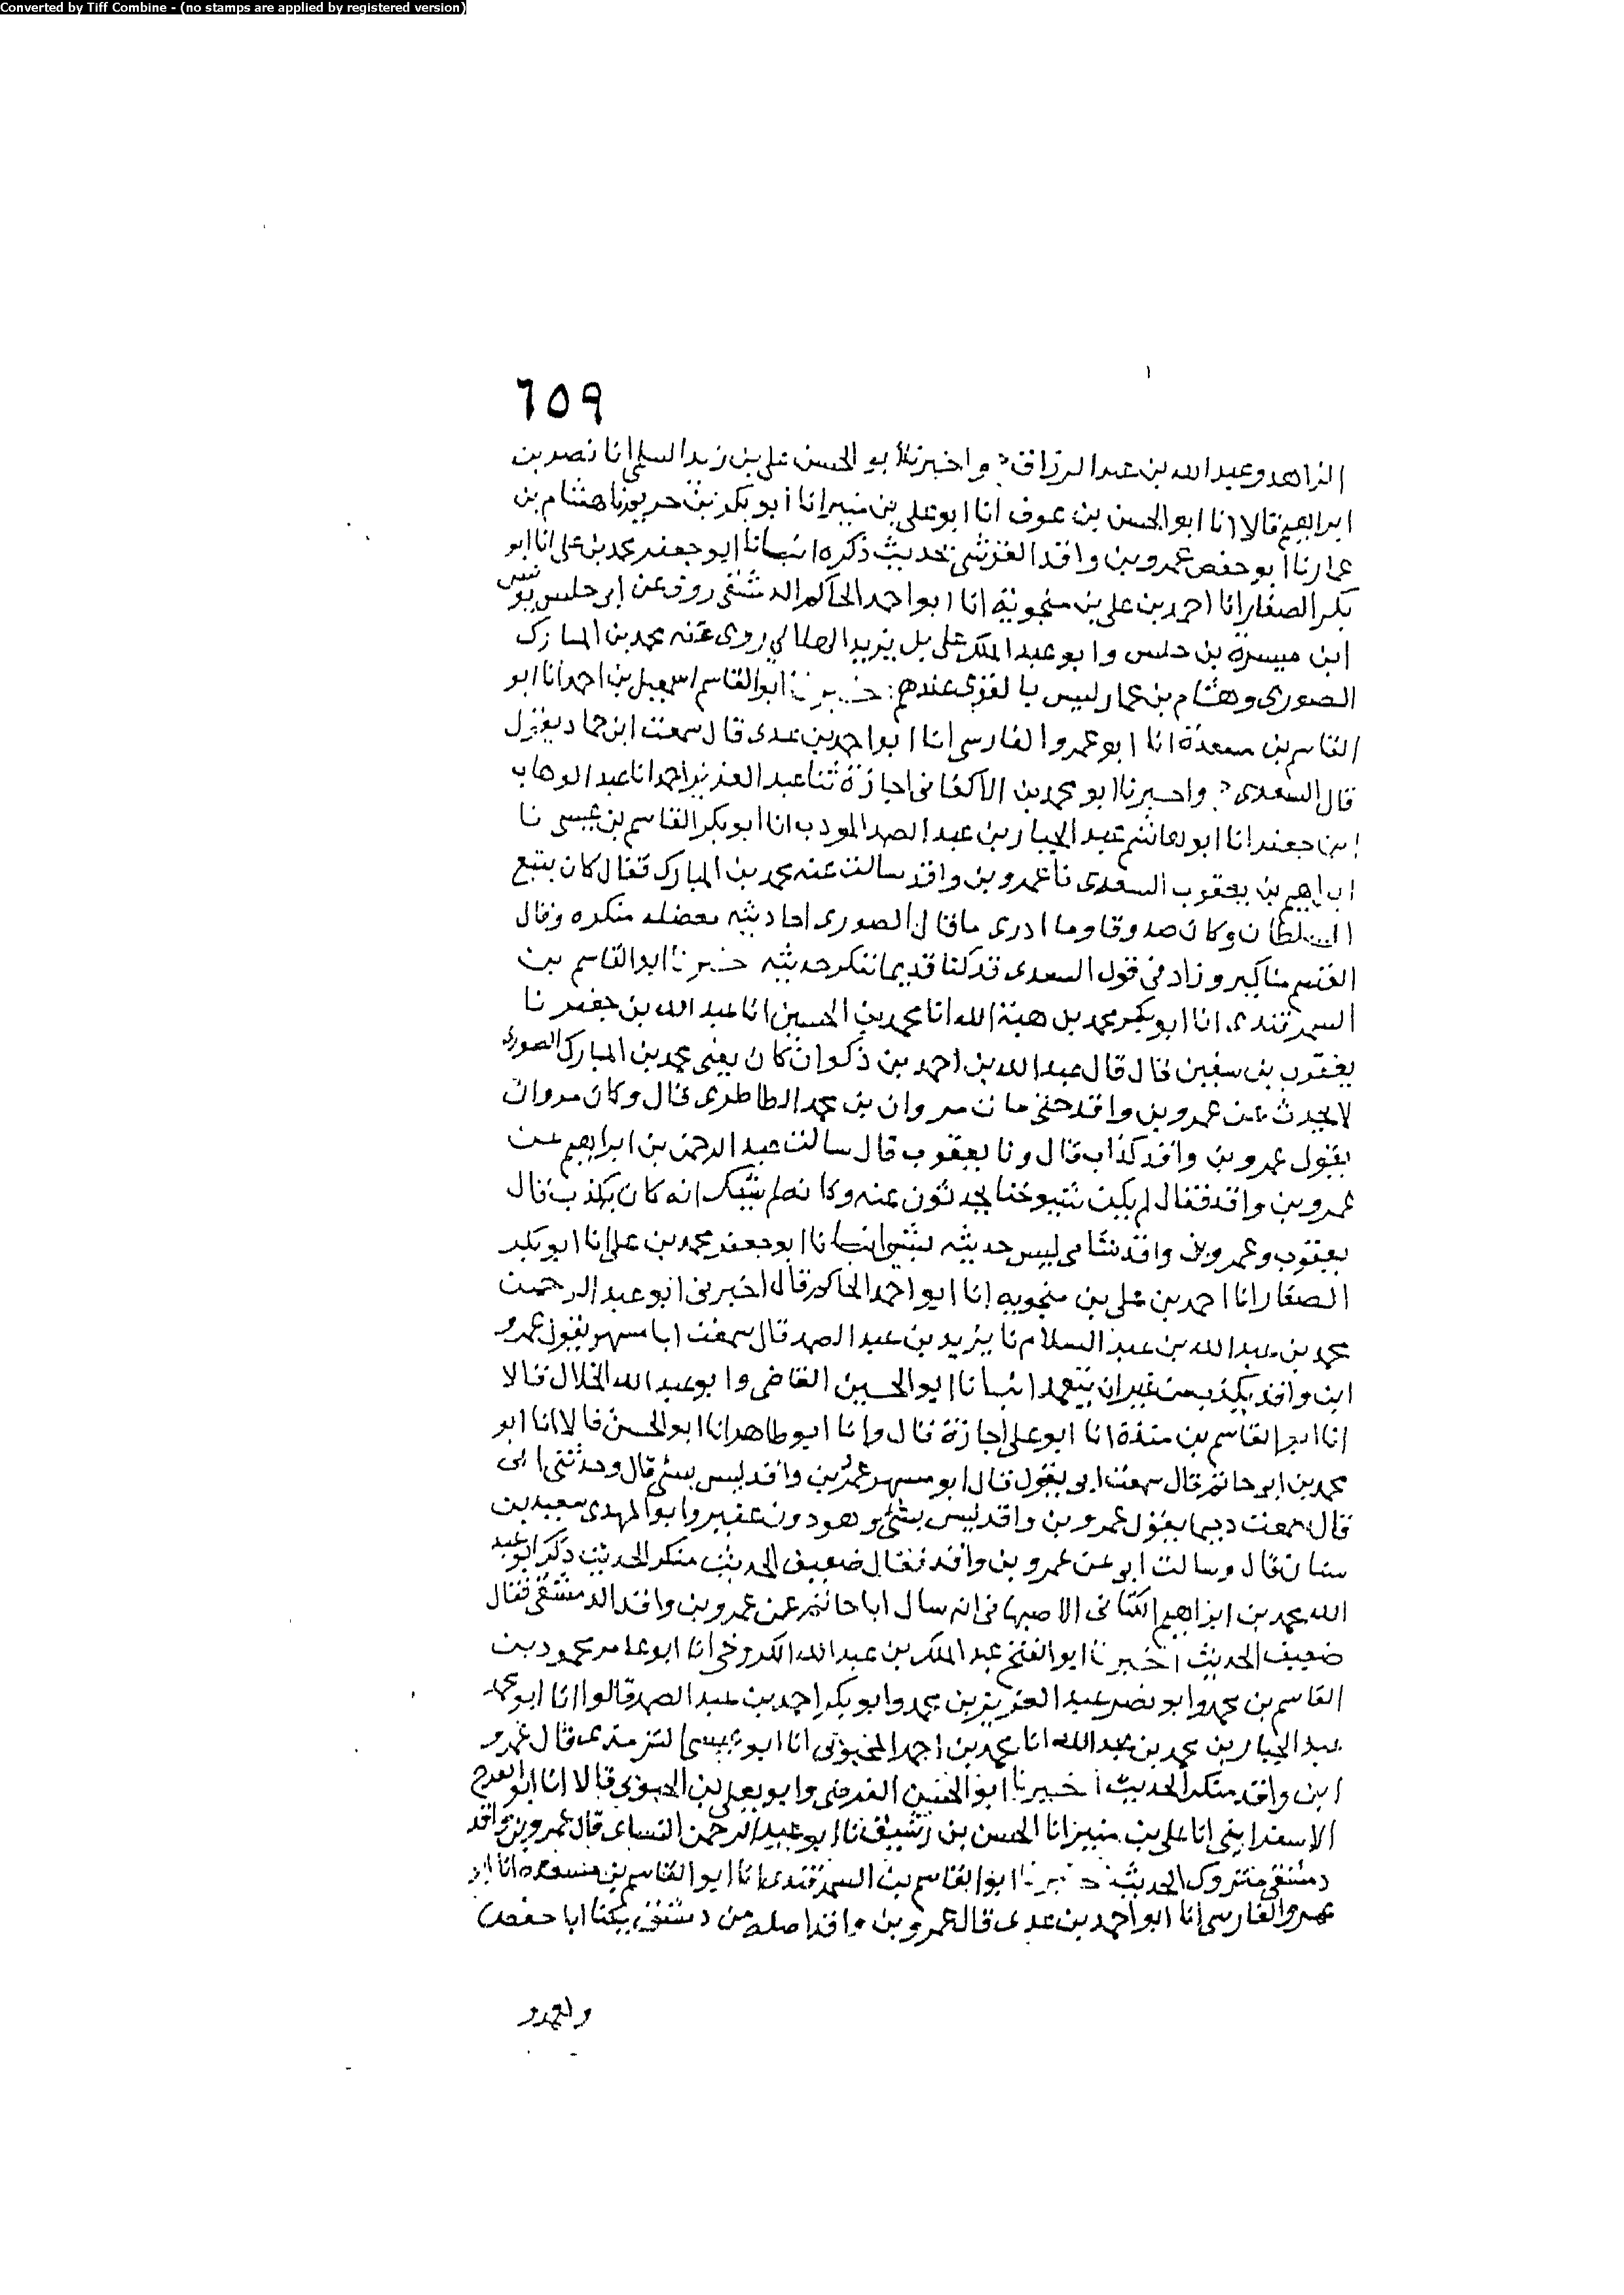 Converted by Tiff Combine - (no stamps are applied by registered version)
٦٥٩
الزاهد وعبد الله بن عبد الرزاق ح واخبرنا ابو الحسن علي بن زيد السلمي انا نصر بن
ابراهيم قالا انا ابو الحسن بن عوف انا ابو علي بن منير انا ابو بكر بن خريم نا هشام بن
عمار نا ابو حفص عمرو بن واقد القرشي بحديث ذكره انبانا ابو جعفر محمد بن علي انا ابو
بكر الصفار انا احمد بن علي بن منجويه انا ابو احمد الحاكم الدمشقي روى عن ابي حلبس يونس
ابن ميسرة بن حلبس وابو عبد الملك علي بل يزيد الهلالي روى عنه محمد بن المبارك
الصوري وهشام بن عمار ليس بالقوي عندهم خبرنا ابو القاسم اسمعيل بن احمد انا ابو
القاسم بن مسعدة انا ابو عمرو الفارسي انا ابو احمد بن عدي قال سمعت ابن حماد يقول
قال السعدي ح واخبرنا ابو محمد بن الاكفاني اجازة ثنا عبد العزيز احمد انا عبد الوهاب
ابن جعفر انا ابو هاشم عبد الجبار بن عبد الصمد المودب انا ابو بكر القاسم بن عيسى نا
ابراهيم بن يعقوب السعدي نا عمرو بن واقد سالت عنه محمد بن المبارك فقال كان يتبع
السلطان وكان صدوقا وما ادرى ما قال الصوري احاديثه معضله منكره وقال
القسم مناكير وزاد في قول السعدي قد كنا قديما ننكر حديثه خبرنا ابو القاسم بن
السمرقندي انا ابو بكر محمد بن هبة الله انا محمد بن الحسين انا عبد الله بن جعفر نا
يعقوب بن سفين قال قال عبد الله بن احمد بن ذكوان كان يعني محمد بن المبارك الصوري
لا يحدث عن عمرو بن واقد حتى مات مروان بن محمد الطاطري قال وكان مروان
يقول عمرو بن واقد كذاب قال ونا يعقوب قال سالت عبد الرحمن بن ابراهيم عن
عمرو بن واقد فقال لم يكن شيوخنا يحدثون عنه وكانه لم يشك انه كان يكذب قال
يعقوب وعمرو بن واقد شامي ليس حديثه بشي انبانا ابو جعفر محمد بن علي انا ابو بكر
الصفار انا احمد بن علي بن منجويه انا ابو احمد الحاكم قال اخبرني ابو عبد الرحمن
محمد بن عبد الله بن عبد السلام نا يزيد بن عبد الصمد قال سمعت ابا مسهر يقول عمرو
ابن واقد يكذب من غير ان يتعمد انبانا ابو الحسين القاضي وابو عبد الله الخلال قالا
انا ابو القاسم بن مندة انا ابو علي اجازة قال وانا ابو طاهر انا ابو الحسن قالا انا ابو
محمد بن ابو حاتم قال سمعت ابو يقول قال ابو مسهر عمر بن واقد ليس بشي قال وحدثني ابي
قال سمعت دحيما يقول عمرو بن واقد ليس بشي وهو دون عفير وابو المهدي سعيد بن
سنان قال وسالت ابو عن عمرو بن واقد فقال ضعيف الحديث منكر الحديث ذكر ابو عبد
الله محمد بن ابراهيم الكتاني الاصبهاني انه سال ابا حاتم عن عمرو بن واقد الدمشقي فقال
ضعيف الحديث اخبرنا ابو الفتح عبد الملك بن عبد الله الكروخي انا ابو عامر محمود بن
القاسم بن محمد وابو نصر عبد العزيز بن محمد وابو بكر احمد بن عبد الصمد قالوا انا ابو محمد
عبد الجبار بن محمد بن عبد الله انا محمد بن احمد المحبوبي انا ابو عيسى الترمذي قال عمرو
ابن واقد منكر الحديث اخبرنا ابو الحسين الفرضي وابو يعلى بن الحبوبي قالا انا ابو الفرج
الاسفرايني انا علي بن منير انا الحسن بن رشيق نا ابو عبد الرحمن النسائي قال عمرو بن واقد
دمشقي متروك الحديث خبرنا ابو القاسم بن السمرقندي انا ابو القاسم بن مسعده انا ابو
عمرو الفارسي انا ابو احمد بن عدي قال عمرو بن واقد اصله من دمشق يكنا ابا حفص
ولعمرو